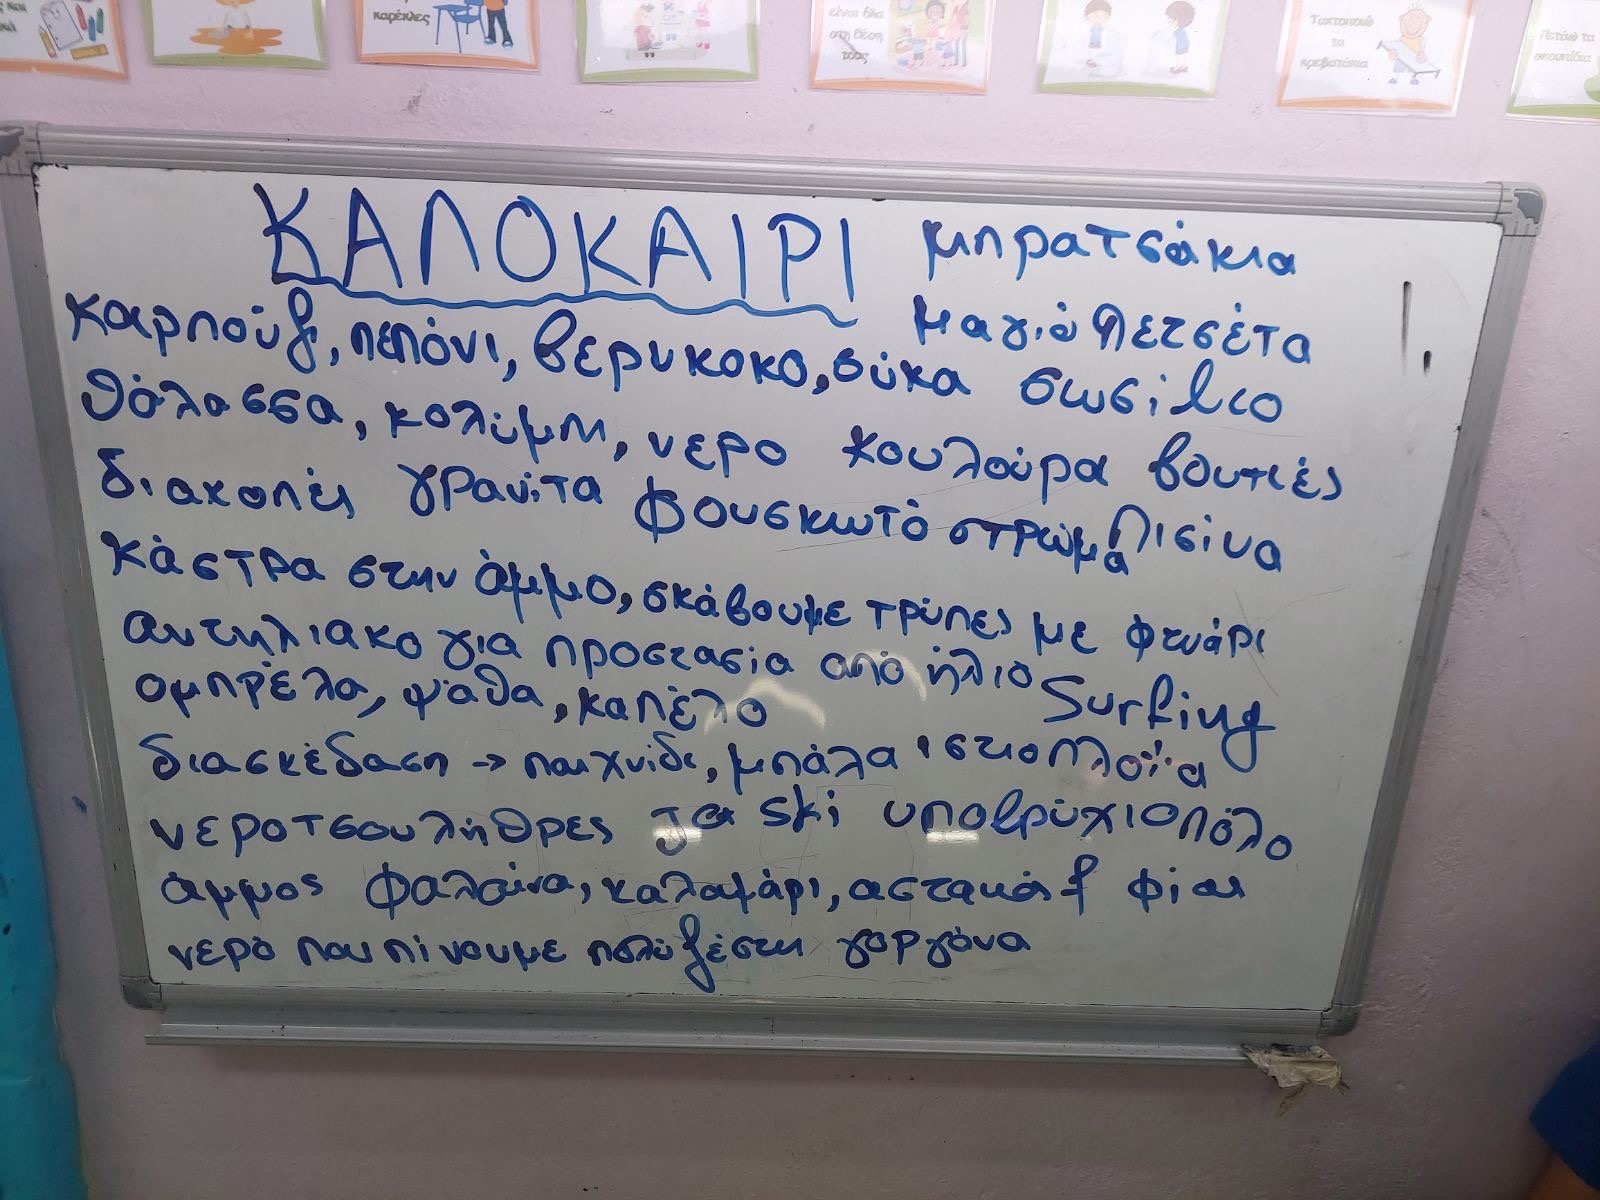 καρέκλες
είναι όλα
στη θέση
τους
Τακτοποιώ
τα
κρεβατάκια
Πετάω τα
σκουπίδια
ΚΑΛΟΚΑΙΡΙ μπρατσάκια
καρπούζι, πεπόνι, βερυκοκο, σύκα μαγιό πετσέτα
θάλασσα, κολύμπι, νερο σωσίβιο
διακοπές γρανίτα φουσκωτό στρώμα κουλούρα βουτιές
κάστρα στην άμμο, σκάβουμε τρύπες με φτυάρι πισίνα
αντηλιακο για προστασία από ήλιο
ομπρέλα, ψάθα, καπέλο Surfing
διασκέδαση → παιχνίδι, μπάλα ιστιοπλοΐα
νεροτσουλήθρες ski υποβρύχιο πόλο
άμμος φάλαινα, καλαμάρι, αστακός
νερό που πίνουμε πολύ ζέστη γοργόνα